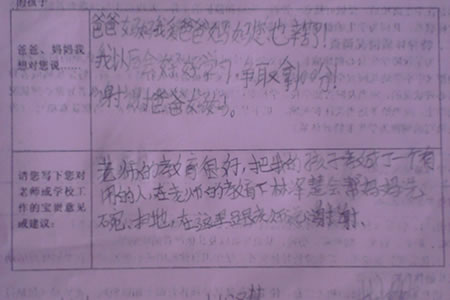 的孩子
爸爸、妈妈我
想对您说……
爸爸妈妈我爱爸爸妈妈你们也辛苦了!
我以后会好好学习,争取拿100分!
谢谢爸爸妈妈。
请您写下您对
老师或学校工
作的宝贵意见
或建议:
老师的教育很好,把我的孩子教成了一个有
用的人,在老师的教育下林泽楚会帮妈妈洗
碗,扫地,在这里跟老师说谢谢。